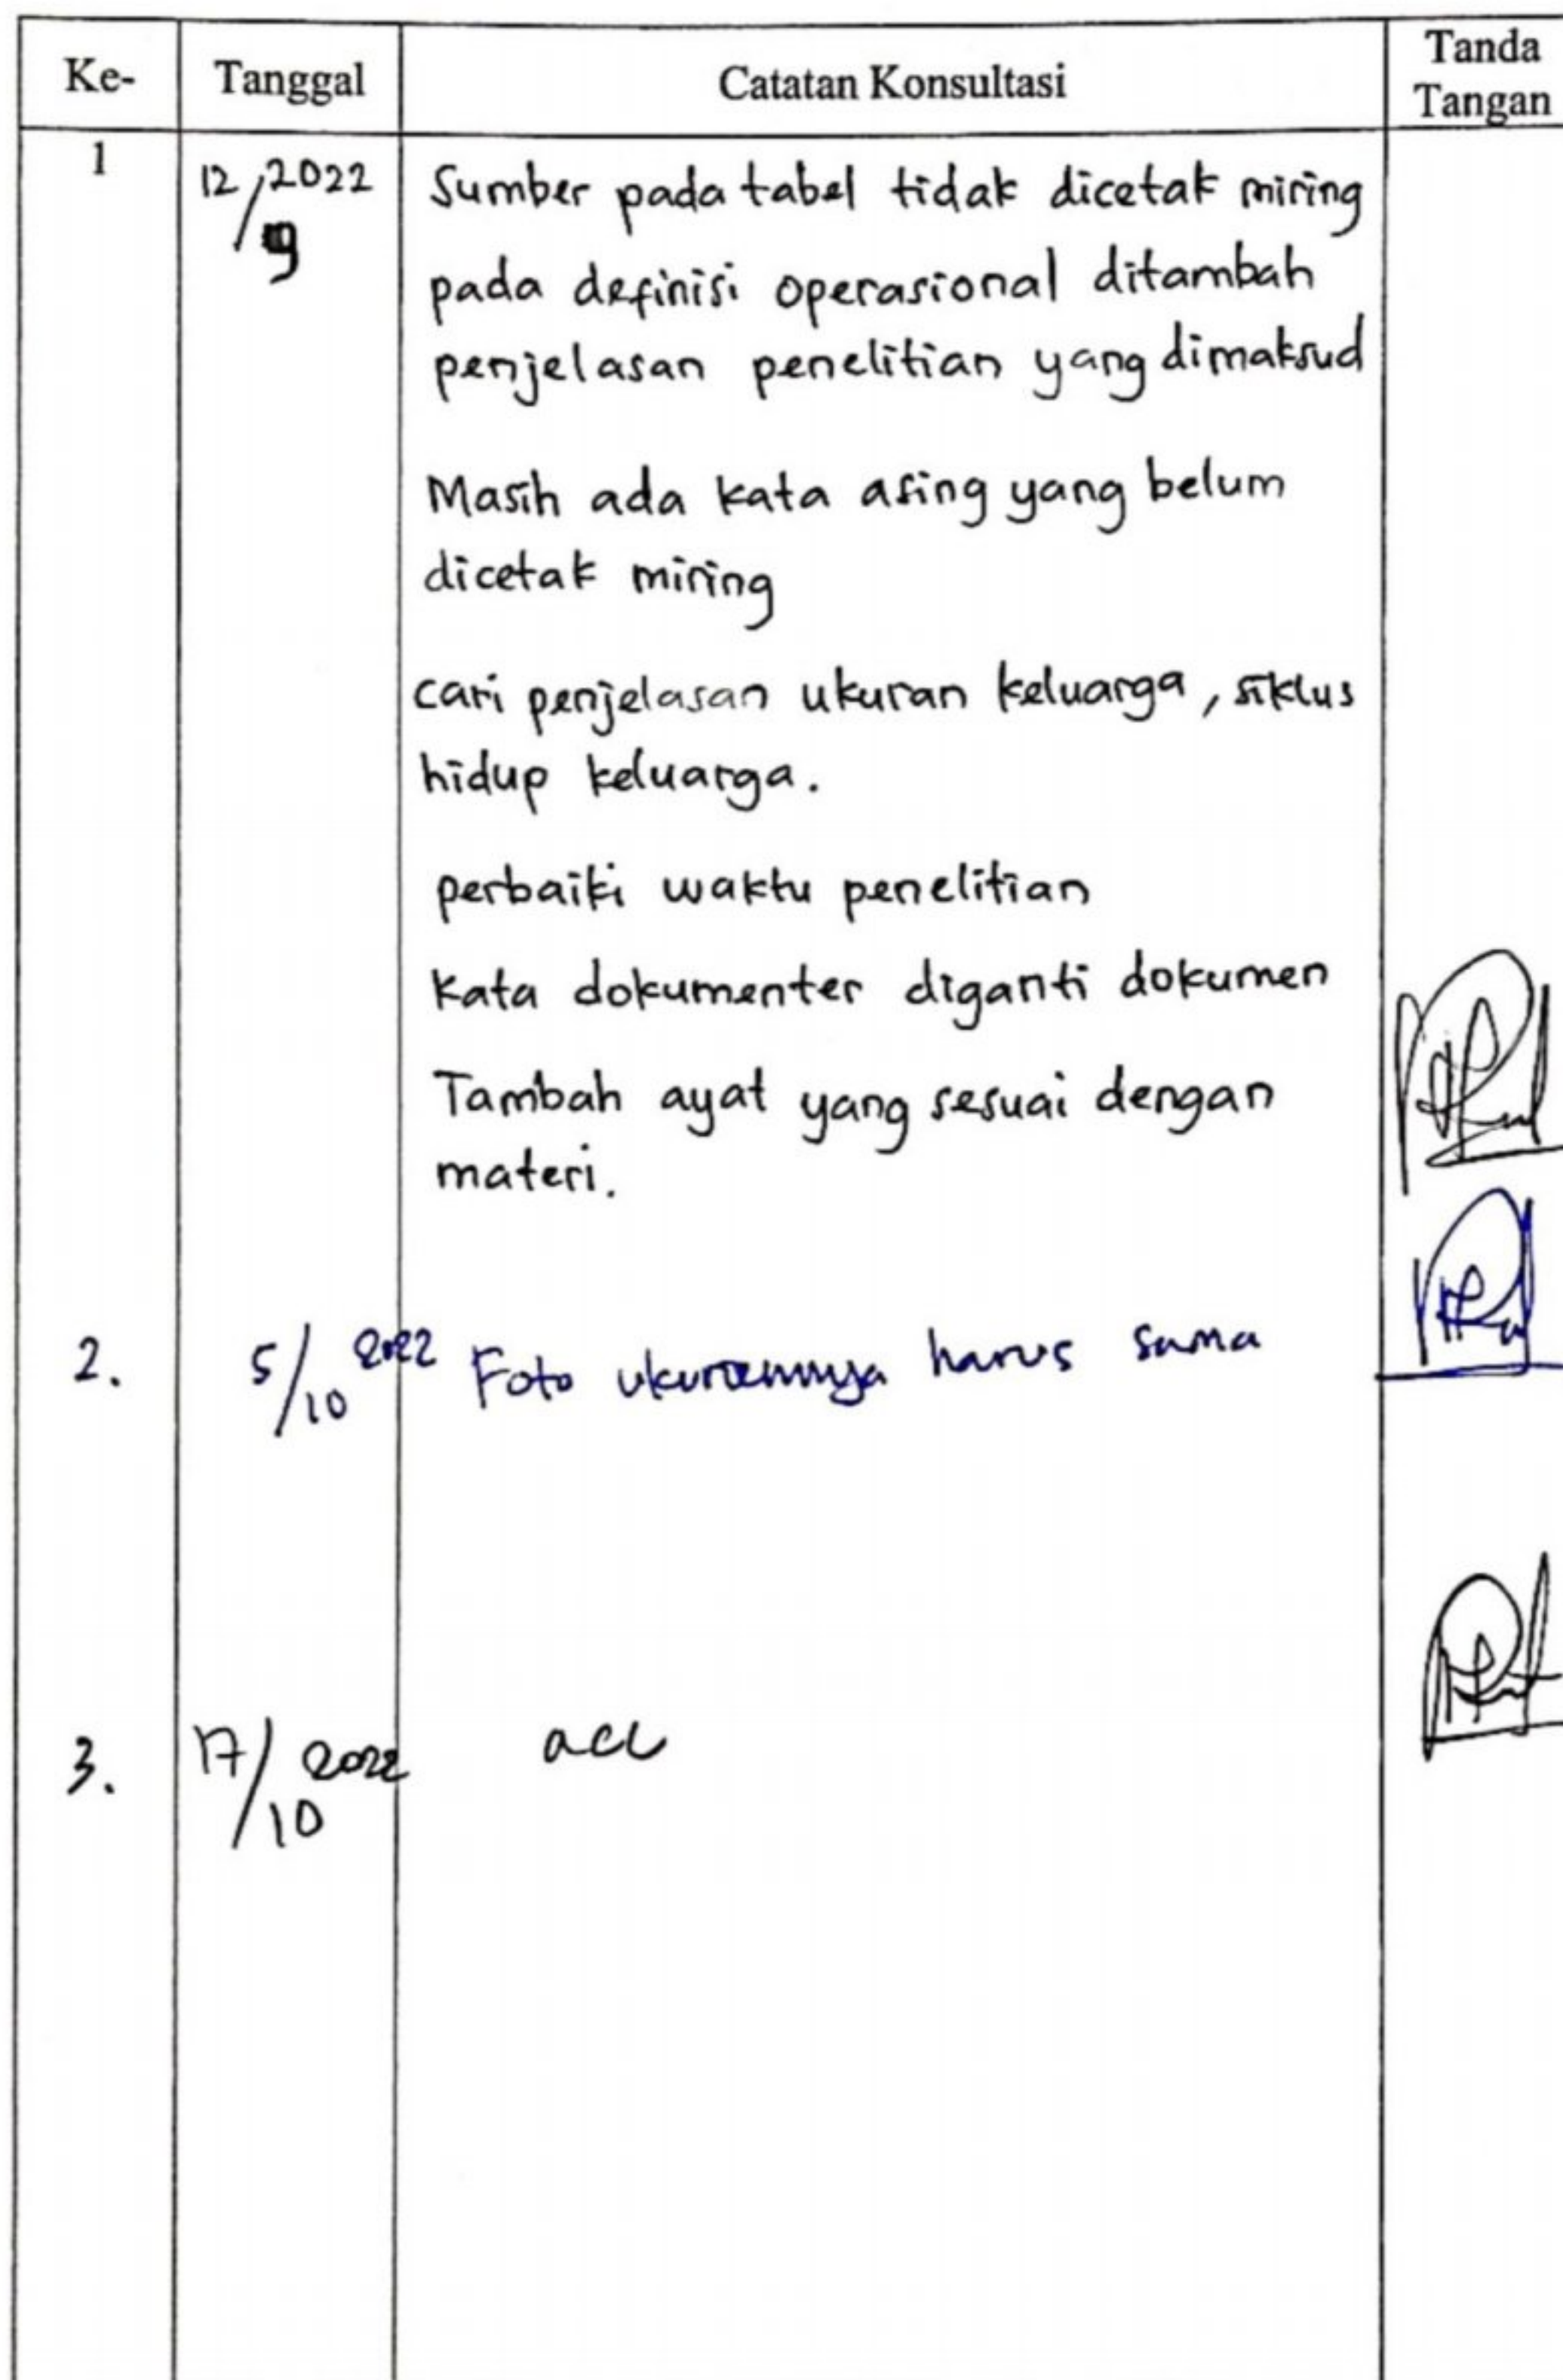 Ke- Tanggal Catatan Konsultasi Tanda Tangan
1 12/9 2022 Sumber pada tabel tidak dicetak miring
pada definisi operasional ditambah
penjelasan penelitian yang dimaksud
Masih ada kata asing yang belum
dicetak miring
cari penjelasan ukuran keluarga, siklus
hidup keluarga.
perbaiki waktu penelitian
Kata dokumenter diganti dokumen
Tambah ayat yang sesuai dengan
materi.
2. 5/10 2022 Foto ukurannya harus sama
3. 17/10 2022 acc